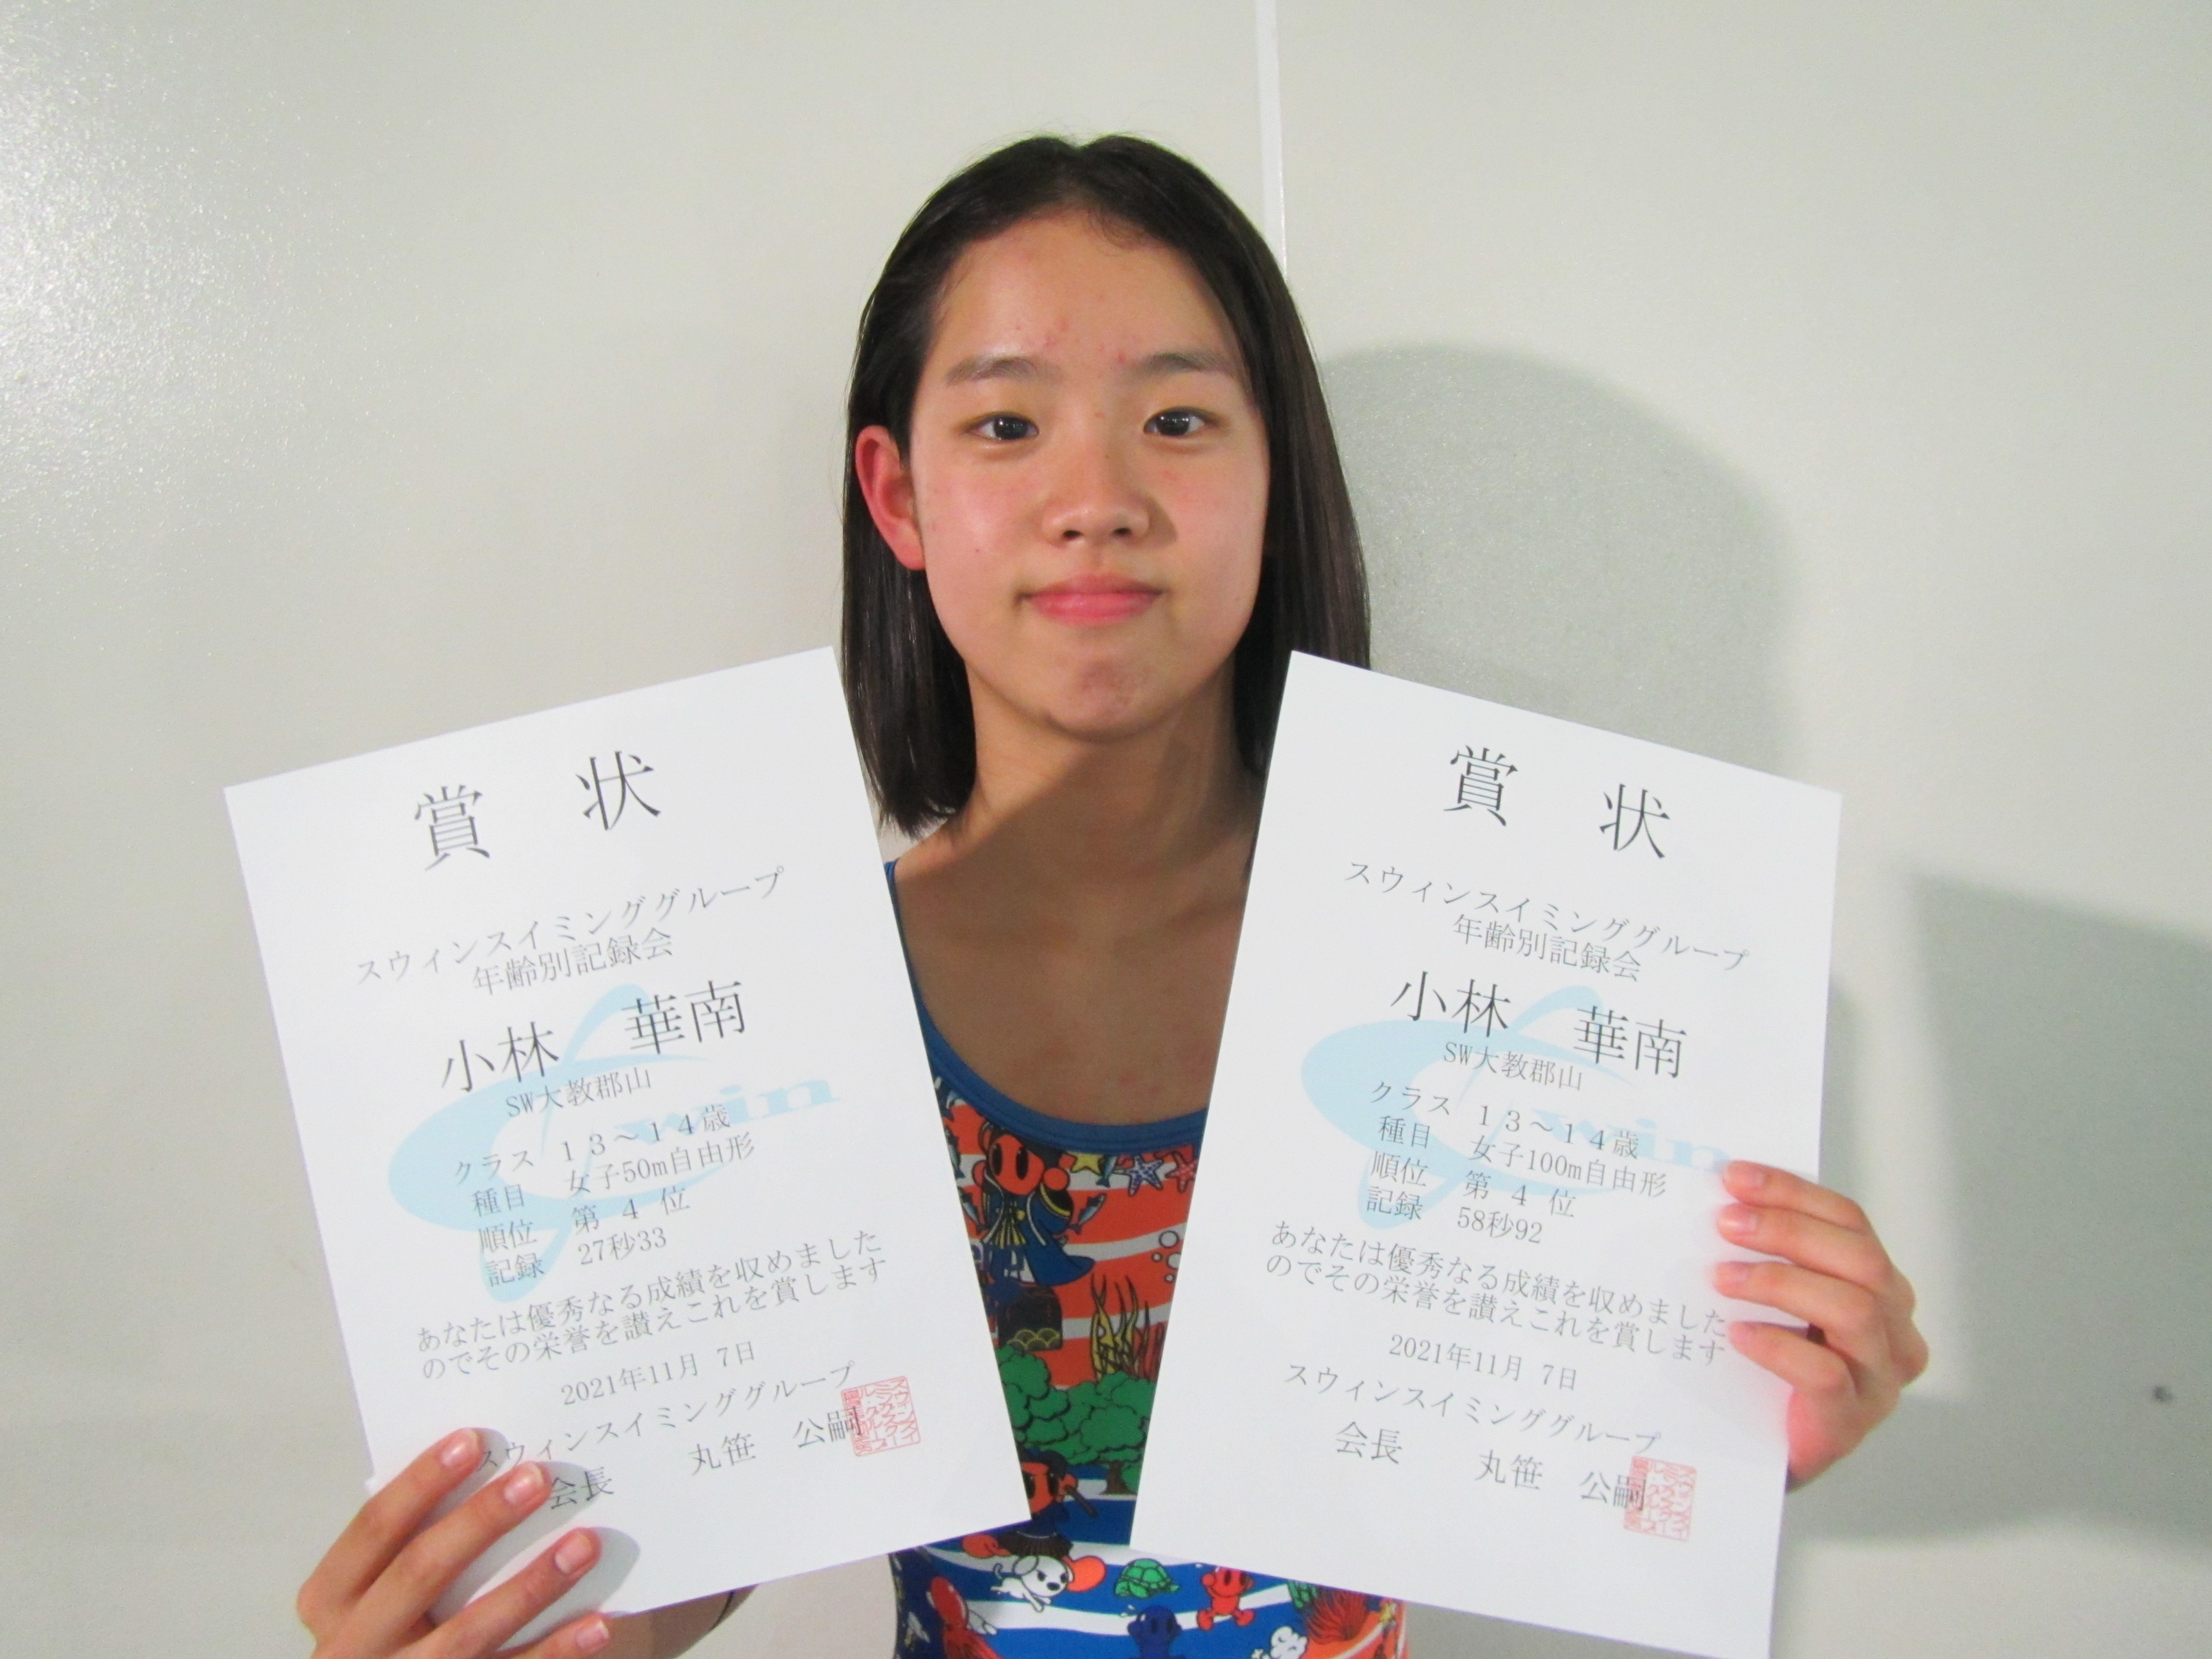 賞 状
スウィンスイミンググループ
年齢別記録会
小林 華南
SW大教郡山
クラス 13～14歳
種目 女子50m自由形
順位 第 4 位
記録 27秒33
あなたは優秀なる成績を収めました
のでその栄誉を讃えこれを賞します
2021年11月 7日
スウィンスイミンググループ
会長 丸笹 公嗣
Swin
賞 状
スウィンスイミンググループ
年齢別記録会
小林 華南
SW大教郡山
クラス 13～14歳
種目 女子100m自由形
順位 第 4 位
記録 58秒92
あなたは優秀なる成績を収めました
のでその栄誉を讃えこれを賞します
2021年11月 7日
スウィンスイミンググループ
会長 丸笹 公嗣
Swin